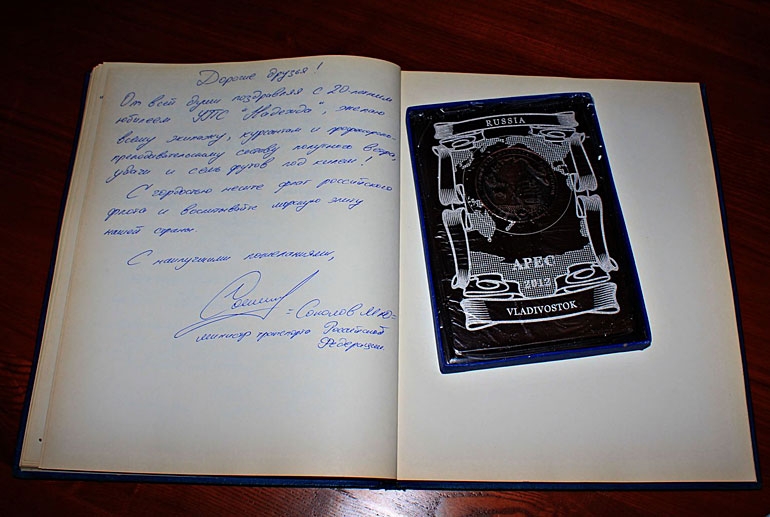 Дорогие друзья!
От всей души поздравляя с 20-летним
юбилеем УПС "Надежда", желаю
всему экипажу, курсантам и профессорско-
преподавательскому составу попутного ветра,
удачи и семь футов под килем!
С гордостью несите флаг российского
флота и воспитывайте морскую элиту
нашей страны.
С наилучшими пожеланиями,
= Соколов М.Ю =
министр транспорта Российской
Федерации.
RUSSIA
APEC
2012
VLADIVOSTOK